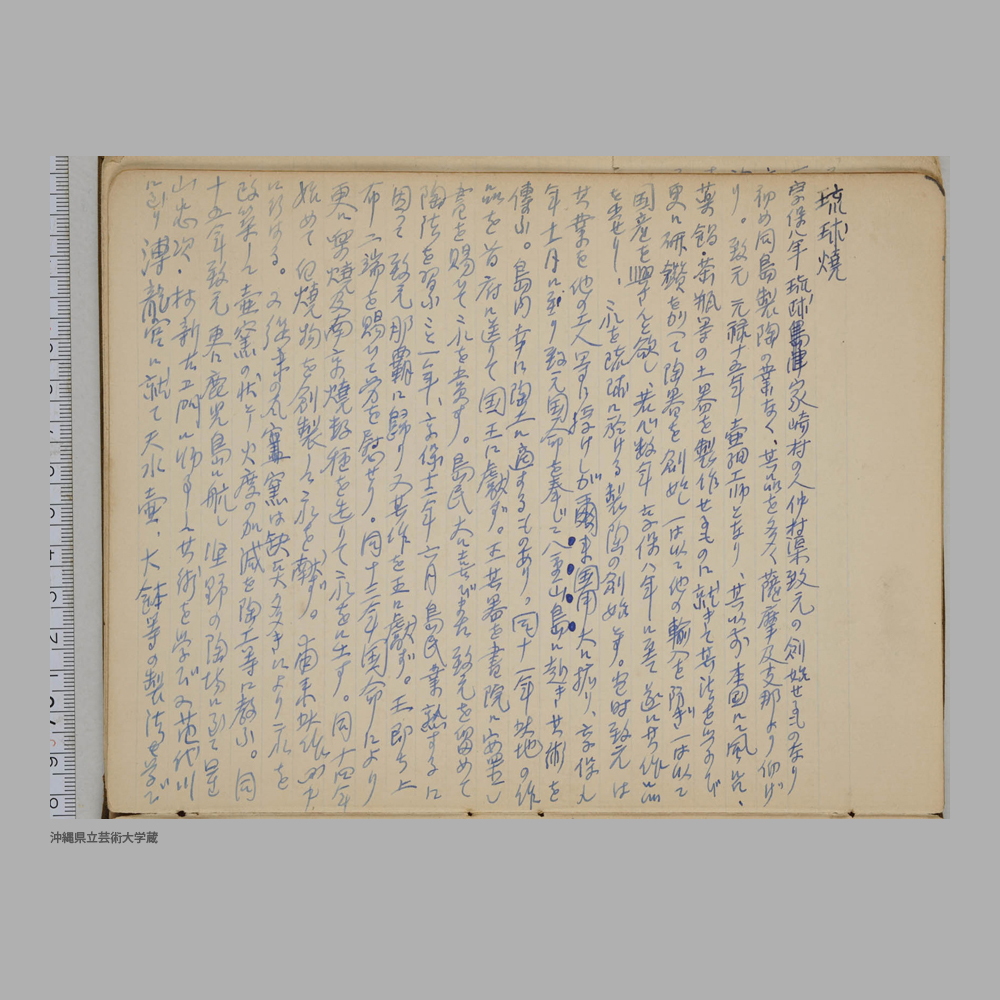 琉球燒
一、享保八年 琉球島津家崎村の人仲村渠致元の創始せるものなり
初め同島製陶の業なく、其品を多く薩摩及支那より仰げ
り。致元 元禄十五年 壷細工師となり、其以前 本国にて風炉、
薬鍋・茶瓶等の土器を製作せるものに就きて其法を学び
更に研鑽を加へて陶器を創始し 一は以て他の輸入を防ぎ 一は以て
国産を興さんと欲し、苦心数年 享保八年に至て遂に其作品
を出せり、之れを琉球に於ける製陶の創始とす。当時致元は
其業を他の工人等に授けしが爾来 大に拡り、享保九
年十一月に至り致元国命を奉じて八重山島に赴き其術を
傳ふ。島内幸に陶土に適するものあり、同十一年此地の作
品を首府に送りて国王に献ず。王其器を書院に安置し
賜せて之れを賞す。島民大に喜び 致元を留めて
陶法を習ふこと一年、享保十二年六月 島民業熟するに
因て 致元那覇に歸り又其作を王に献ず。王即ち上
布二端を賜ひて労を慰せり。同十三年国命により
更に楽焼及南京焼数種を造りて之れを出す。同十四年
始めて 焼物を創製し之れを献ず。
に形はる。又従来の 窯は缺点多きにより之れを
改築し 壷窯の状や火度の加減を陶工等に教ふ。同
十五年致元更に鹿児島に航し 堅野の陶場に到て星
山忠次・林新右衛門に師事し其術を学び又苗代川
に到り 溥龍官に就て天水壷、大鉢等の製法を学び
沖縄県立芸術大学蔵